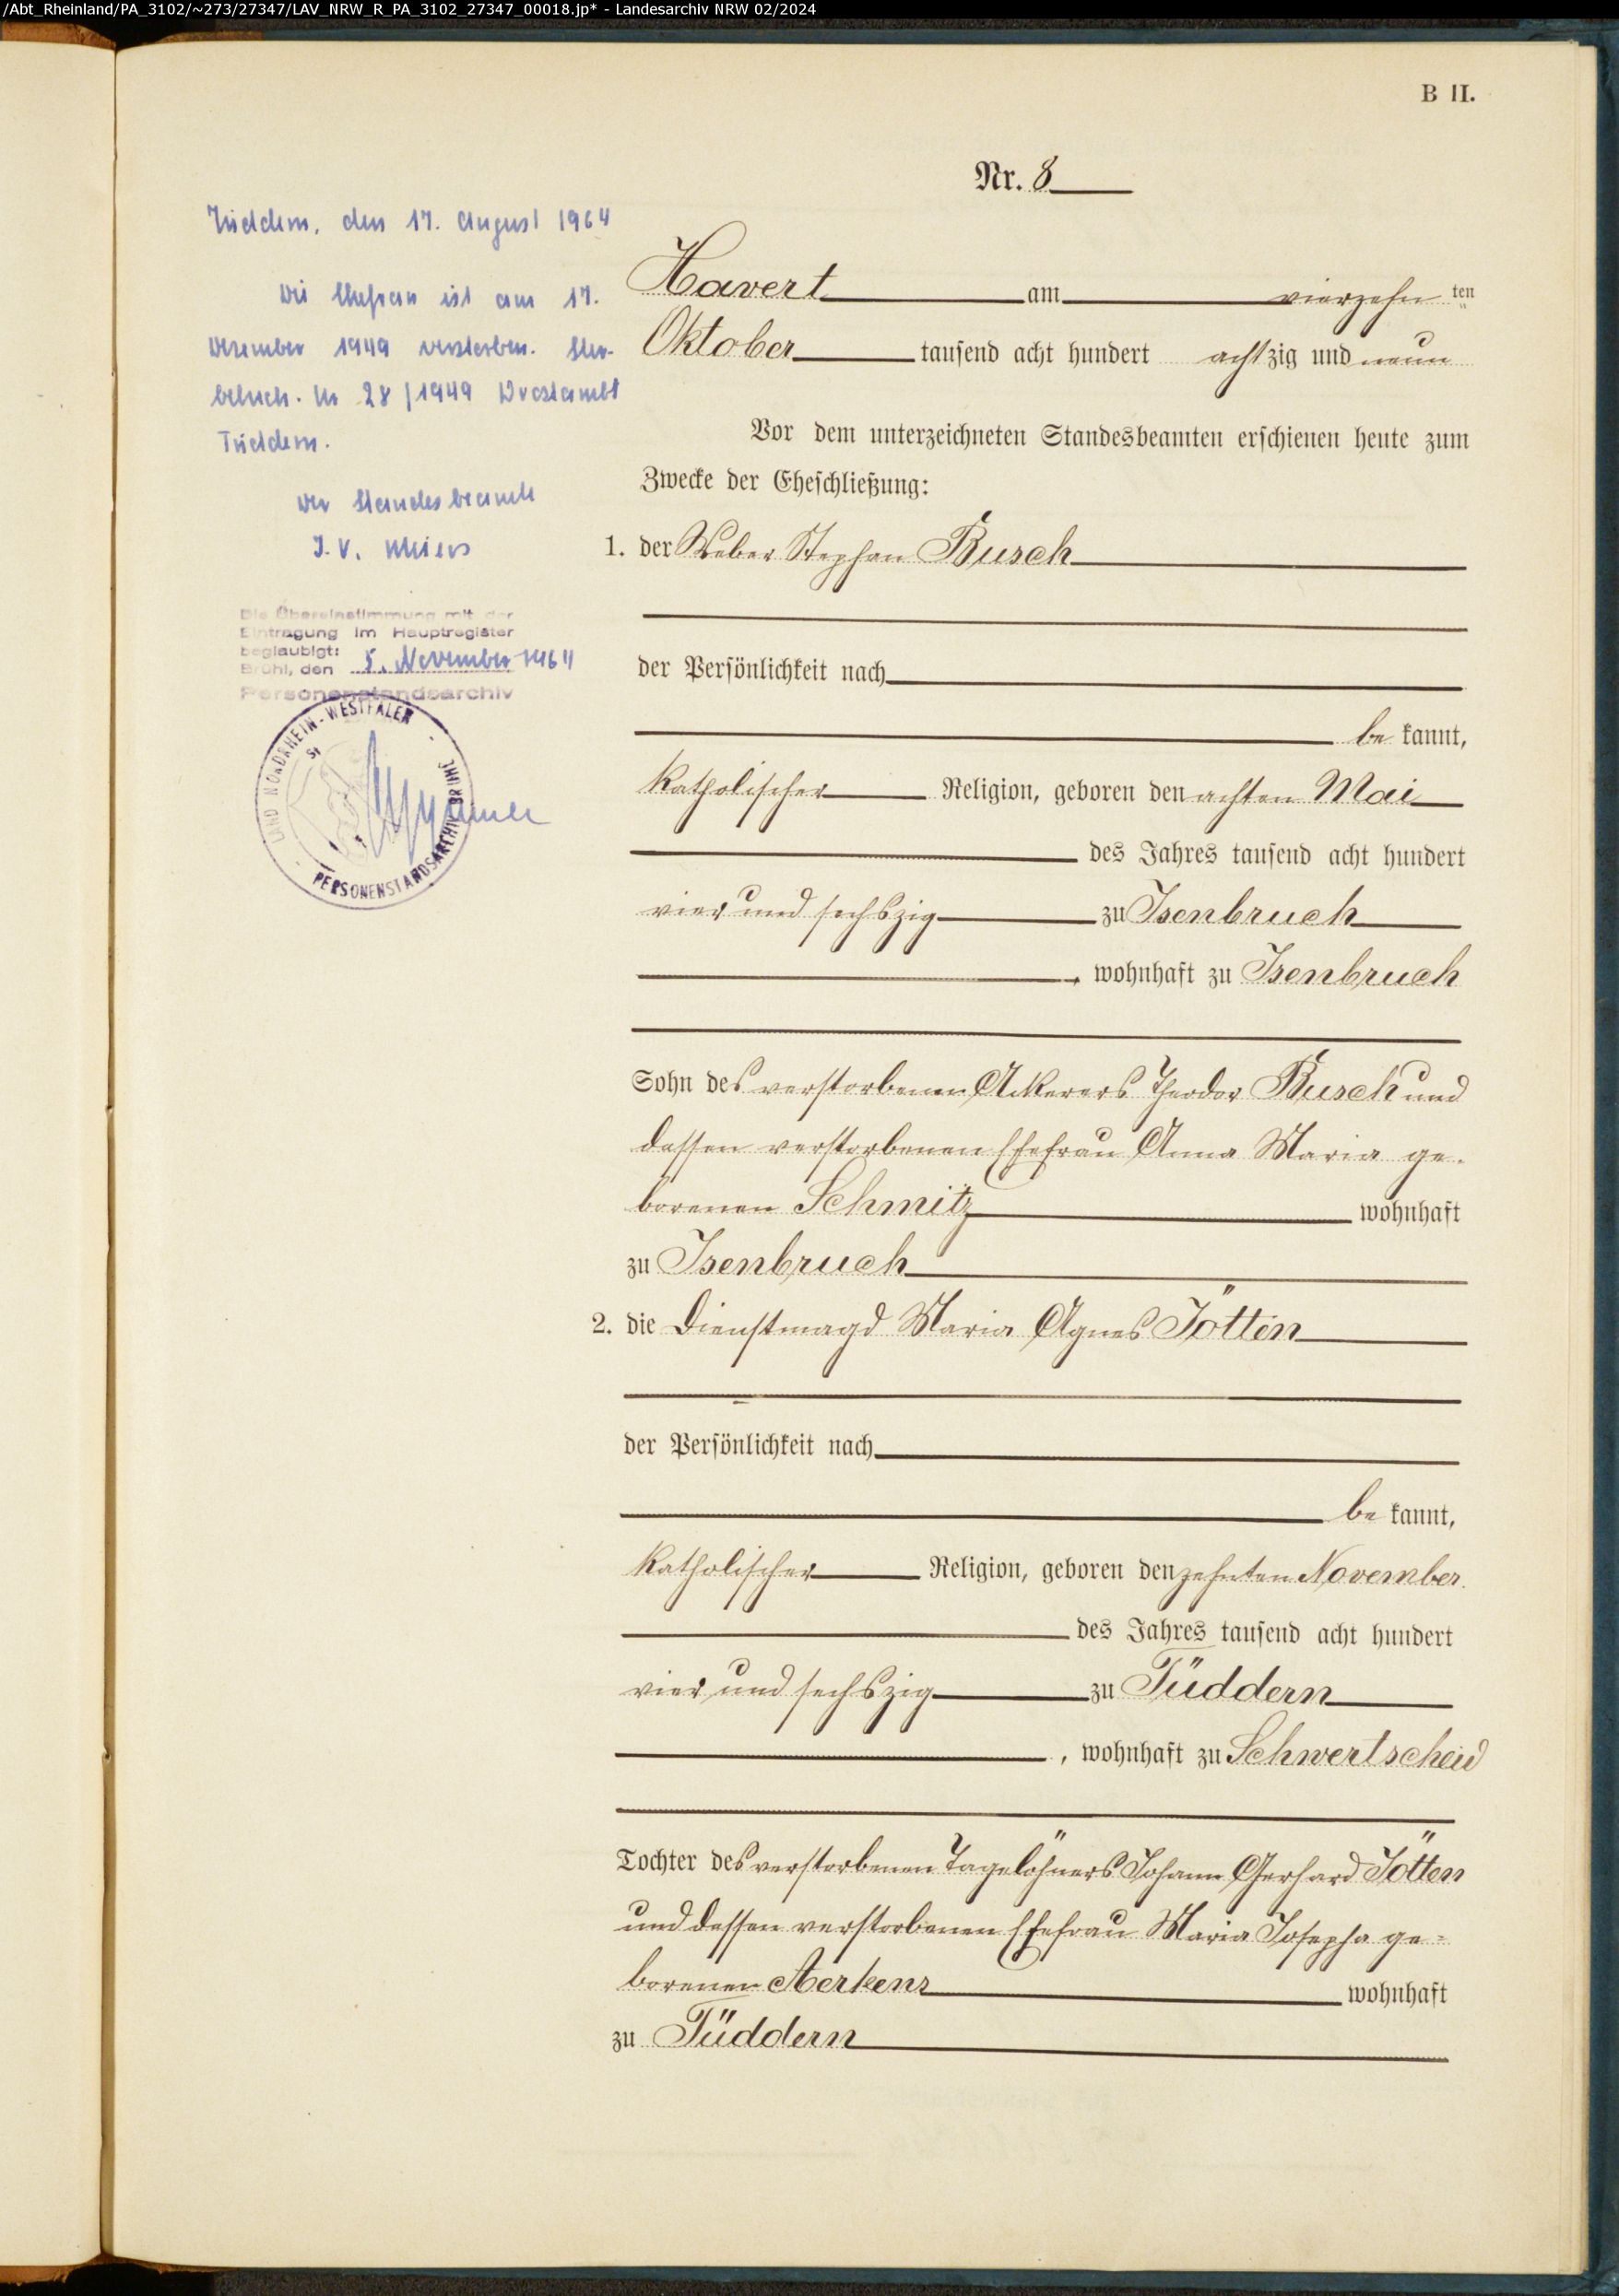 /Abt_Rheinland/PA_3102/~273/27347/LAV_NRW_R_PA_3102_27347_00018.jp* - Landesarchiv NRW 02/2024
B II.
Nr. 8
Tüddern, den 17. August 1964
Die Ehefrau ist am 17.
Dezember 1949 verstorben. Ster-
bebuch. Nr 28/1949 Standesamt
Tüddern.
Der Standesbeamte
I. V.
Die Übereinstimmung mit der
Eintragung im Hauptregister
beglaubigt:
Brühl, den 5. November 1964
Personenstandsarchiv
LAND NORDRHEIN-WESTFALEN
PERSONENSTANDSARCHIV BRÜHL
Havert am vierzehn ten
Oktober tausend acht hundert achtzig und neun
Vor dem unterzeichneten Standesbeamten erschienen heute zum
Zwecke der Eheschließung:
1. der Weber Stephan Busch
der Persönlichkeit nach
be kannt,
katholischer Religion, geboren den achten Mai
des Jahres tausend acht hundert
vier und sechszig zu Isenbruch
, wohnhaft zu Isenbruch
Sohn des verstorbenen Ackerers Theodor Busch und
dessen verstorbenen Ehefrau Anna Maria ge-
borenen Schmitz wohnhaft
zu Isenbruch
2. die Dienstmagd Maria Agnes Jötten
der Persönlichkeit nach
be kannt,
katholischer Religion, geboren den zehnten November
des Jahres tausend acht hundert
vier und sechszig zu Tüddern
, wohnhaft zu Schwertscheid
Tochter des verstorbenen Tagelöhners Johann Gerhard Jötten
und dessen verstorbenen Ehefrau Maria Josepha ge-
borenen Aerkens wohnhaft
zu Tüddern